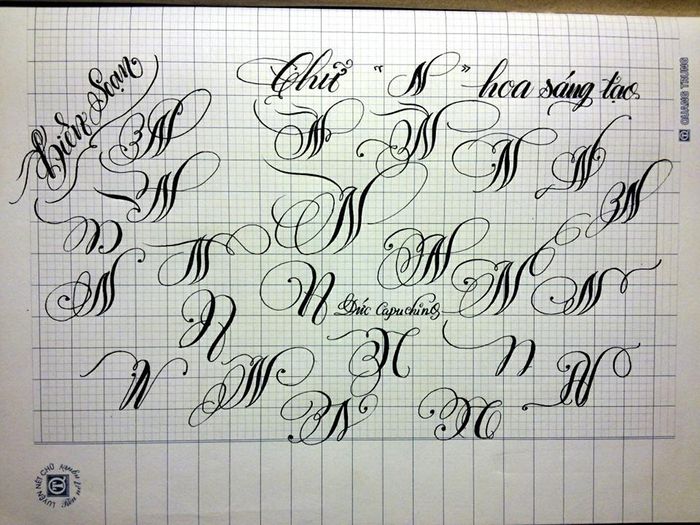 Biên Soạn
Chữ "N" hoa sáng tạo
N N N N N
N N N
N N
N N N N N
Đức Capuchino
N N N
N N N N N
QUANG TRUNG
LUYỆN NÉT CHỮ